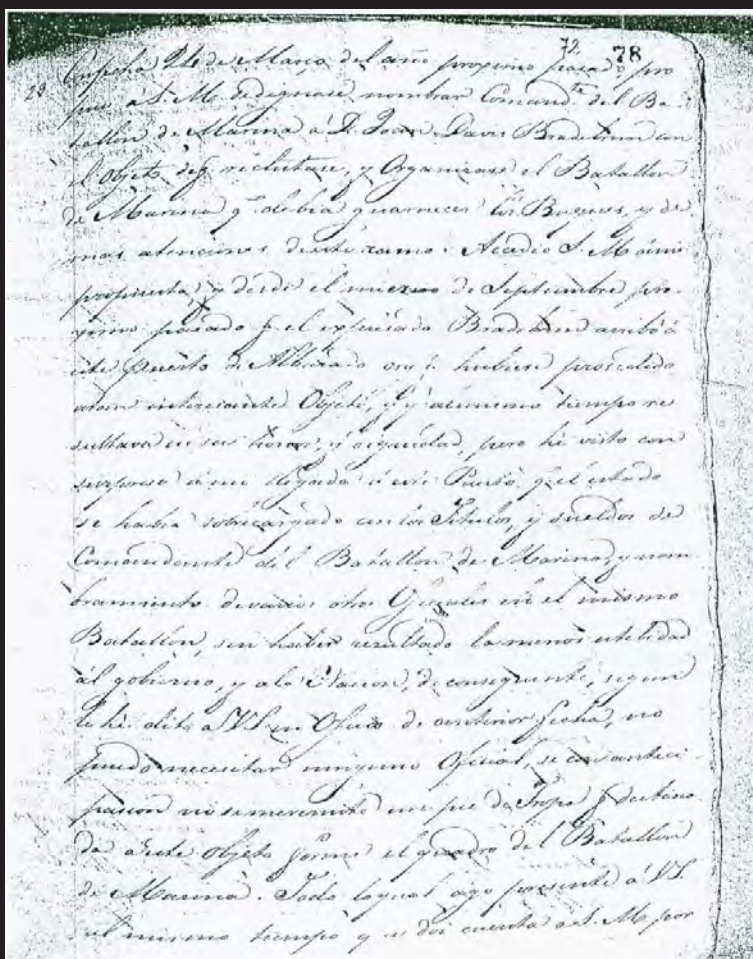 72 78
23
En fecha 24 de Marzo del año proximo pasado, pro
puse á S. M. se dignase nombrar Comand.te del Ba-
tallon de Marina á D. Juan Davis Bradburn con
el objeto de q. reclutase, y Organizase el Batallon
de Marina q.e debia guarnecer los Buques, y de
mas atenciones de este ramo. Acedio S. M. á mi
propuesta, y desde el mes de Septiembre pro-
ximo pasado q. el espresado Bradburn arribó á
este Puerto de Albarado crei hubiese procedido
atan interesante Objeto, q.e y al mismo tiempo re
sultava en su honor, y seguridad, pero hé visto con
surpresa á mi llegada á este Puerto, q.e el estado
se habia sobrecargado con los Titulos, y sueldos de
Comandante del Batallon de Marina, y nom
bramiento de varios otros Oficiales en el mismo
Batallon, sin haber resultado la menor utilidad
al gobierno, y a la Nacion, de consiguiente, segun
le hé dicho á V.S. en Oficio de anterior fecha, no
puedo necesitar ninguno Oficial, si con antici-
pacion no se me remite un pie de Tropa q. destina
da á este objeto forme el quadro del Batallon
de Marina. Todo lo qual ago presente á V.S.
al mismo tiempo q.e doi cuenta á S. M. por